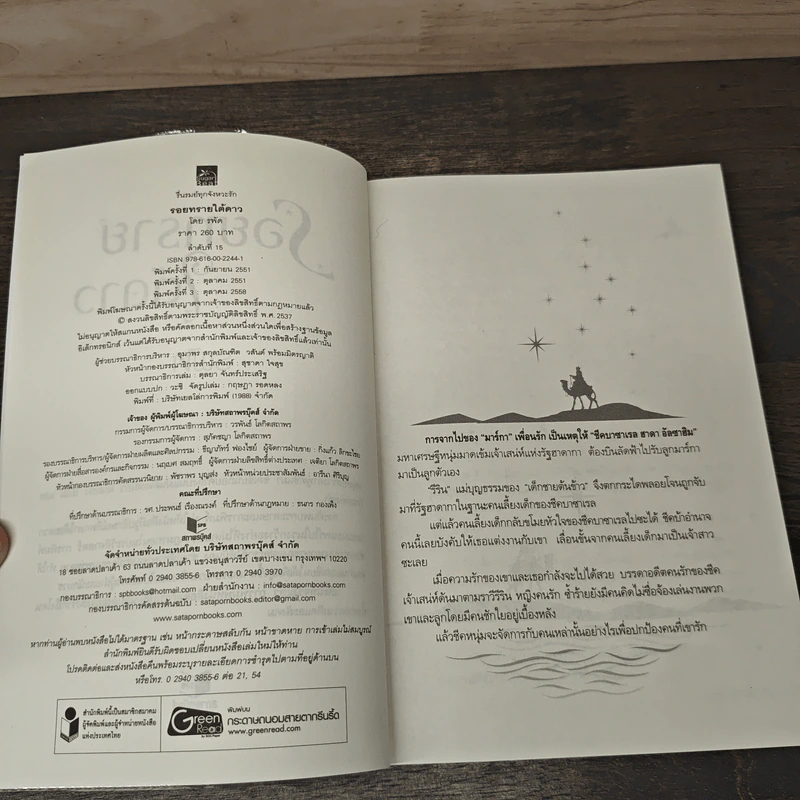 รื่นรมย์ทุกจังหวะรัก
รอยทรายใต้ดาว
โดย รพัด
ราคา 260 บาท
ลำดับที่ 15
ISBN 978-616-00-2244-1
พิมพ์ครั้งที่ 1 : กันยายน 2551
พิมพ์ครั้งที่ 2 : ตุลาคม 2551
พิมพ์ครั้งที่ 3 : ตุลาคม 2558
พิมพ์โฆษณาครั้งนี้ได้รับอนุญาตจากเจ้าของลิขสิทธิ์ตามกฎหมายแล้ว
© สงวนลิขสิทธิ์ตามพระราชบัญญัติลิขสิทธิ์ พ.ศ.2537
ไม่อนุญาตให้สแกนหนังสือ หรือคัดลอกเนื้อหาส่วนหนึ่งส่วนใดเพื่อสร้างฐานข้อมูล
อิเล็กทรอนิกส์ เว้นแต่ได้รับอนุญาตจากสำนักพิมพ์และเจ้าของลิขสิทธิ์แล้วเท่านั้น
ผู้ช่วยบรรณาธิการบริหาร : อุมาพร สกุลบัณฑิต วสันต์ พร้อมมิตรญาติ
หัวหน้ากองบรรณาธิการสำนักพิมพ์ : สุชาดา ใจสุข
บรรณาธิการเล่ม : ตุลยา จันทร์ประเสริฐ
ออกแบบปก : วะชิ จัดรูปเล่ม : กฤษฎา รอดหลง
พิมพ์ที่ : บริษัทเยลโล่การพิมพ์ (1988) จำกัด
เจ้าของ ผู้พิมพ์ผู้โฆษณา : บริษัทสถาพรบุ๊คส์ จำกัด
กรรมการผู้จัดการ/บรรณาธิการบริหาร : วรพันธ์ โลกิตสถาพร
รองกรรมการผู้จัดการ : สุภัคชญา โลกิตสถาพร
รองบรรณาธิการบริหาร/ผู้จัดการฝ่ายผลิตและศิลปกรรม : ชีญาภัทร์ ฟองไชย์ ผู้จัดการฝ่ายขาย : กิ่งแก้ว
ผู้จัดการฝ่ายสื่อสารองค์กรและกิจกรรม : นฤเบศ สมฤทธิ์ ผู้จัดการฝ่ายลิขสิทธิ์ต่างประเทศ : เจติยา โลกิตสถาพร
หัวหน้ากองบรรณาธิการคัดสรรนวนิยาย : พัชราพร บุญส่ง หัวหน้าหน่วยประชาสัมพันธ์ : อารีนา ศิริบุญ
คณะที่ปรึกษา
ที่ปรึกษาด้านบรรณาธิการ : รศ.ประพนธ์ เรืองณรงค์ ที่ปรึกษาด้านกฎหมาย : ธนากร กองเพ็ง
SPB
สถาพรบุ๊คส์
จัดจำหน่ายทั่วประเทศโดย บริษัทสถาพรบุ๊คส์ จำกัด
18 ซอยลาดปลาเค้า 63 ถนนลาดปลาเค้า แขวงอนุสาวรีย์ เขตบางเขน กรุงเทพฯ 10220
โทรศัพท์ 0 2940 3855-6 โทรสาร 0 2940 3970
กองบรรณาธิการ : spbbooks@hotmail.com ฝ่ายสำนักงาน : info@satapornbooks.com
กองบรรณาธิการคัดสรรต้นฉบับ : satapornbooks.editor@gmail.com
www.satapornbooks.com
หากท่านผู้อ่านพบหนังสือไม่ได้มาตรฐาน เช่น หน้ากระดาษสลับกัน หน้าขาดหาย การเข้าเล่มไม่สมบูรณ์
สำนักพิมพ์ยินดีรับผิดชอบเปลี่ยนหนังสือเล่มใหม่ให้ท่าน
โปรดติดต่อและส่งหนังสือคืนพร้อมระบุรายละเอียดการชำรุดไปตามที่อยู่ด้านบน
หรือโทร. 0 2940 3855-6 ต่อ 21, 54
สำนักพิมพ์นี้เป็นสมาชิกสมาคม
ผู้จัดพิมพ์และผู้จำหน่ายหนังสือ
แห่งประเทศไทย
Green Read
พิมพ์บน
กระดาษถนอมสายตากรีนรี้ด
www.greenread.com
การจากไปของ "มาร์กา" เพื่อนรัก เป็นเหตุให้ "ชีคบาซาเรล ฮาดา อัลซาฮิม"
มหาเศรษฐีหนุ่มมาดเข้มเจ้าเสน่ห์แห่งรัฐฮาดากา ต้องบินลัดฟ้าไปรับลูกมาร์กา
มาเป็นลูกตัวเอง
"รีริน" แม่บุญธรรมของ "เด็กชายต้นข้าว" จึงตกกระไดพลอยโจนถูกจับ
มาที่รัฐฮาดากาในฐานะคนเลี้ยงเด็กของชีคบาซาเรล
แต่แล้วคนเลี้ยงเด็กกลับขโมยหัวใจของชีคบาซาเรลไปซะได้ ชีคบ้าอำนาจ
คนนี้เลยบังคับให้เธอแต่งงานกับเขา เลื่อนขั้นจากคนเลี้ยงเด็กมาเป็นเจ้าสาว
ซะเลย
เมื่อความรักของเขาและเธอกำลังจะไปได้สวย บรรดาอดีตคนรักของชีค
เจ้าเสน่ห์ดันมาตามราวีรีริน หญิงคนรัก ซ้ำร้ายยังมีคนคิดไม่ซื่อจ้องเล่นงานพวก
เขาและลูกโดยมีคนชักใยอยู่เบื้องหลัง
แล้วชีคหนุ่มจะจัดการกับคนเหล่านั้นอย่างไรเพื่อปกป้องคนที่เขารัก